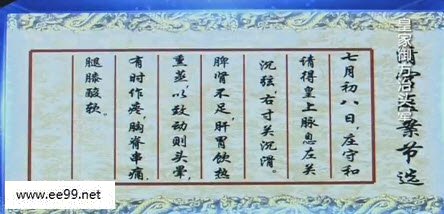 皇家御方治头晕
清宫医案节选
七月初八日,庄守和
请得皇上脉息左关
沉弦,右寸关沉滑。
脾肾不足,肝胃饮热
熏蒸,以致动则头晕,
有时作疼,胸脊串痛,
腿膝酸软。
www.ee99.net